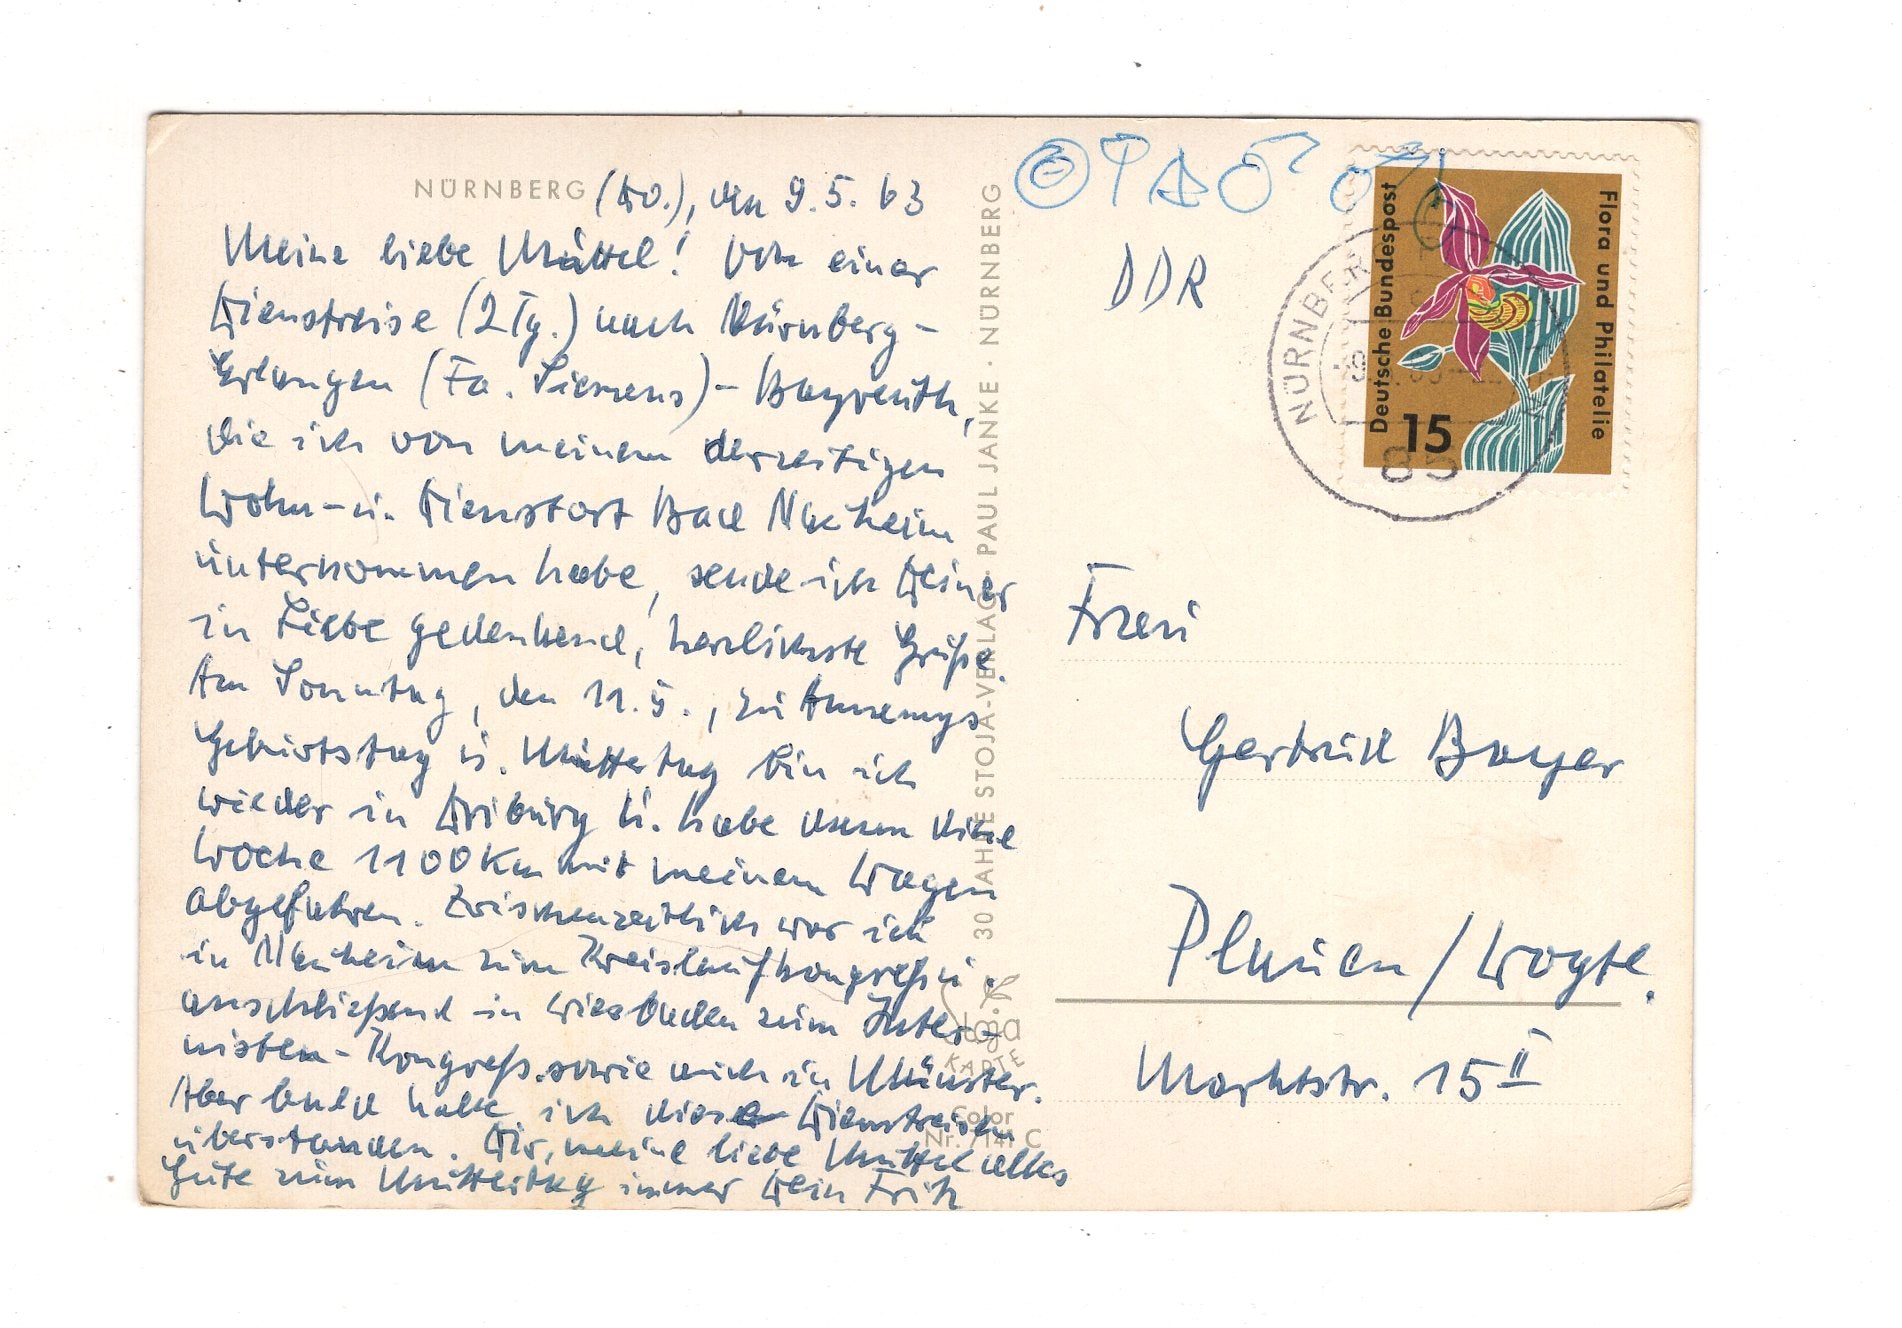 NÜRNBERG (Do.), den 9.5.63
Meine liebe Muttel! Von einer
Dienstreise (2 Tg.) nach Nürnberg-
Erlangen (Fa. Siemens) - Bayreuth,
die ich von meinem derzeitigen
Wohn- u. Dienstort Bad Nauheim
unternommen habe, sende ich Deiner
in Liebe gedenkend, herzlichste Grüße.
Am Sonntag, den 11.5., zu Annemys
Geburtstag u. Muttertag bin ich
wieder in Driburg u. habe dann diese
Woche 1100 Km mit meinem Wagen
abgefahren. Zwischenzeitlich war ich
in Nauheim zum Kreislaufkongreß u.
anschließend in Wiesbaden zum Inter-
nisten-Kongreß sowie auch in Münster.
Aber bald habe ich diese Dienstreisen
überstanden. Dir, meine liebe Muttel alles
Gute zum Muttertag immer Dein Fritz
30 JAHRE STOJA-VERLAG · PAUL JANKE · NÜRNBERG
Stoja
KARTE
Color
Nr. 7141 C
DDR
Deutsche Bundespost
Flora und Philatelie
15
NÜRNBERG
85
Frau
Gertrud Bayer
Plauen / Vogtl.
Marktstr. 15 II